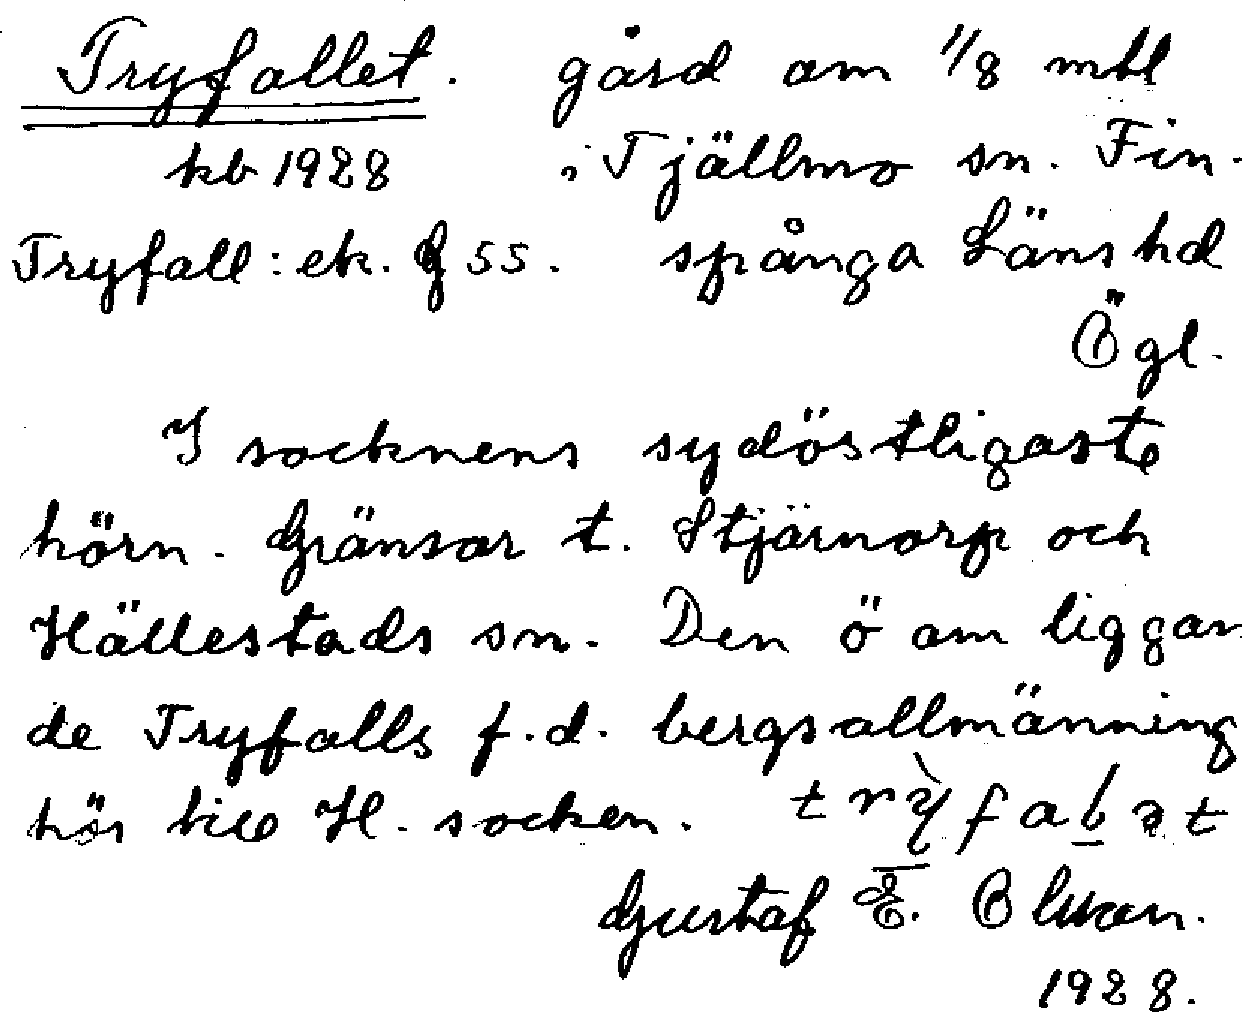 Tryfallet. gård om 1/8 mtl
kb 1928 i Tjällmo sn. Fin-
Tryfall: ek. 55. spånga Läns hd
Ögl.
I socknens sydöstligaste
hörn. Gränsar t. Stjärnorp och
Hällestads sn. Den ö om liggan
de Tryfalls f.d. bergsallmänning
hör till H. socken.
Gustaf E. Olson.
1928.